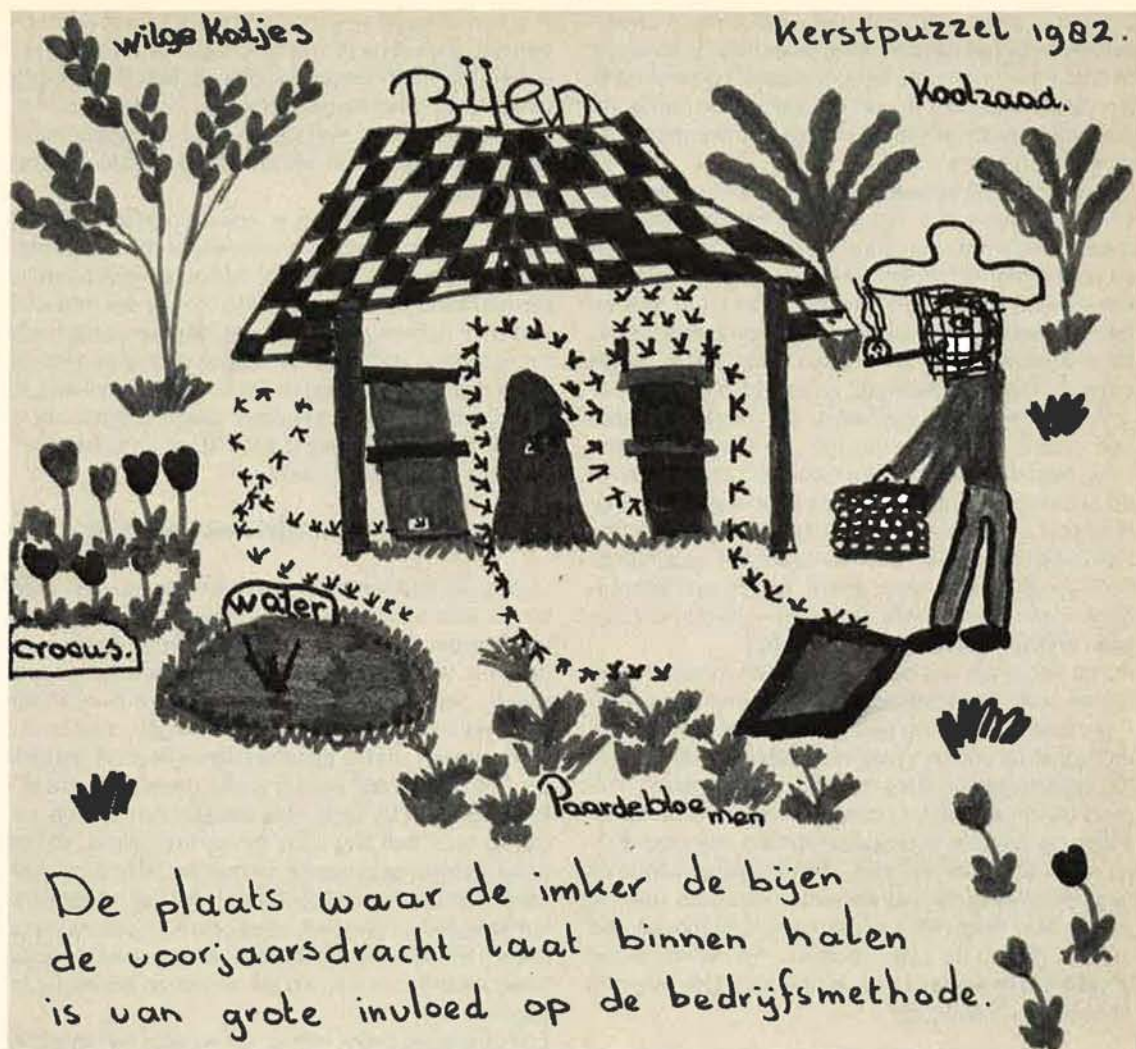 wilge Katjes
Kerstpuzzel 1982.
Koolzaad.
Bijen
water
crocus.
Paardebloemen
De plaats waar de imker de bijen
de voorjaarsdracht laat binnen halen
is van grote invloed op de bedrijfsmethode.